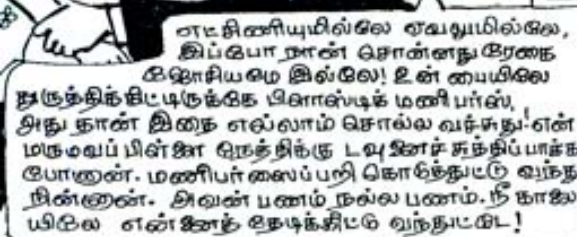 எட்சிணியுமில்லே ஏவலுமில்லே,
இப்போ நான் சொன்னது ரேகை
ஜோசியமே இல்லே! உன் பையிலே
துருத்திக்கிட்டிருக்கே பிளாஸ்டிக் மணிபர்ஸ்,
அது தான் இதை எல்லாம் சொல்ல வச்சுது! என்
மருமவப்பிள்ளை நேத்திக்கு டவுனைச் சுத்திப்பாக்க
போனான். மணிபர்ஸைப்பறி கொடுத்துட்டு வந்து
நின்னான். அவன் பணம் நல்ல பணம். நீ காலை
யிலே என்னைத் தேடிக்கிட்டு வந்துட்டே!